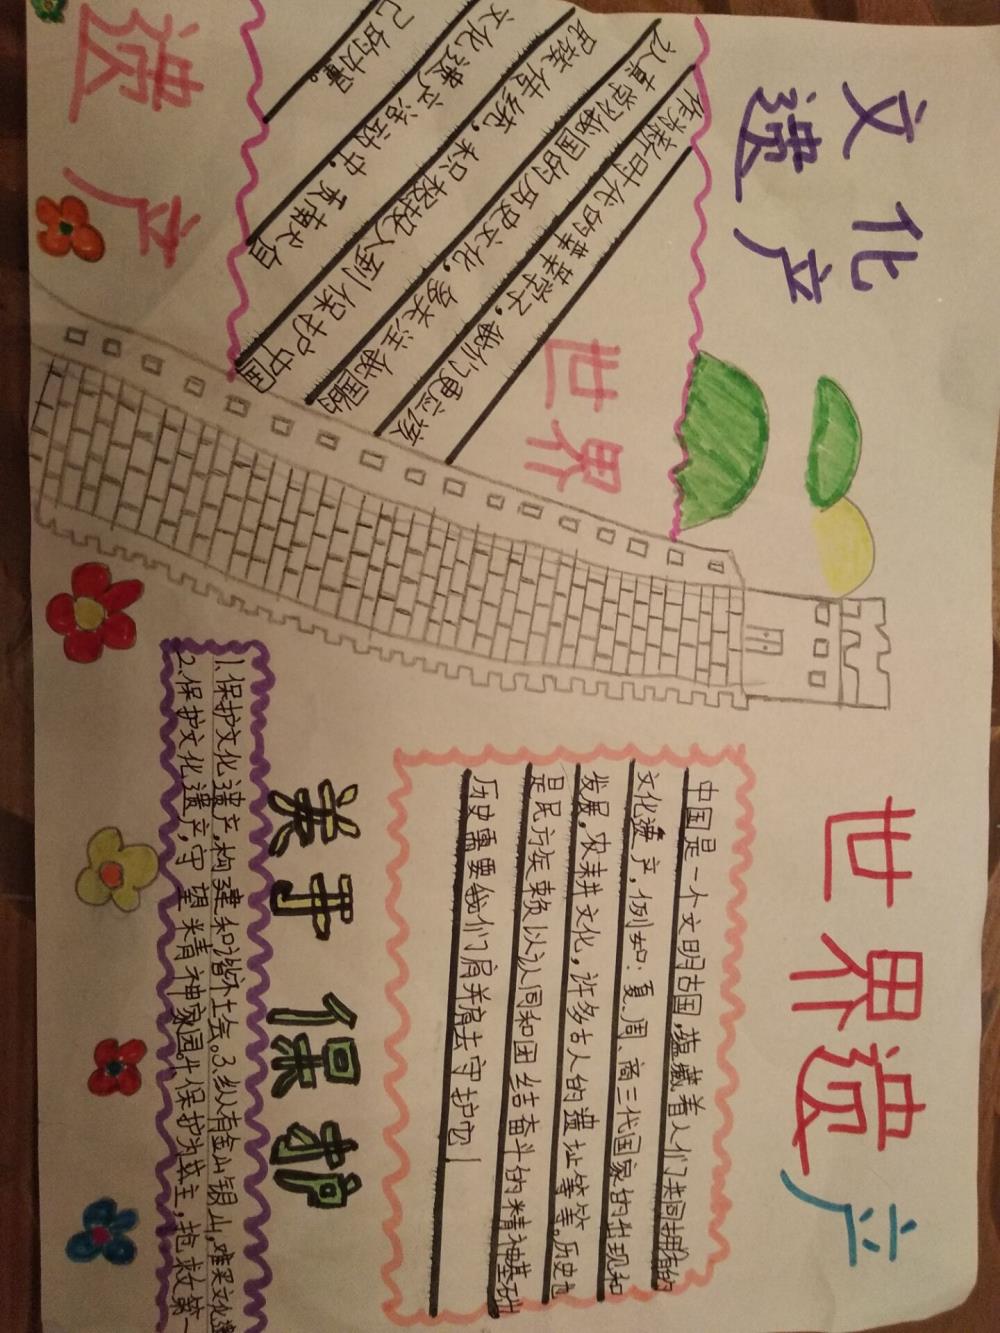 文化
遗产
世界遗产
世界
遗产
作为新时代的莘莘学子，我们更应须
认真学习我国的历史文化，多关注我国的
民族传统，积极投入到保护中国
文化遗产活动中，贡献自
己的力量。
中国是一个文明古国，蕴藏着人们共同拥有的
文化遗产，例如：夏、周、商三代国家的出现和
发展，农耕文化，许多古人的遗址等等。历史也
是民族赖以认同和团结奋斗的精神基础
历史需要我们肩并肩去守护它！
关于保护
1.保护文化遗产，构建和谐社会。3.纵有金山银山，难买文化遗
2.保护文化遗产，守望精神家园。4.保护为主，抢救第一